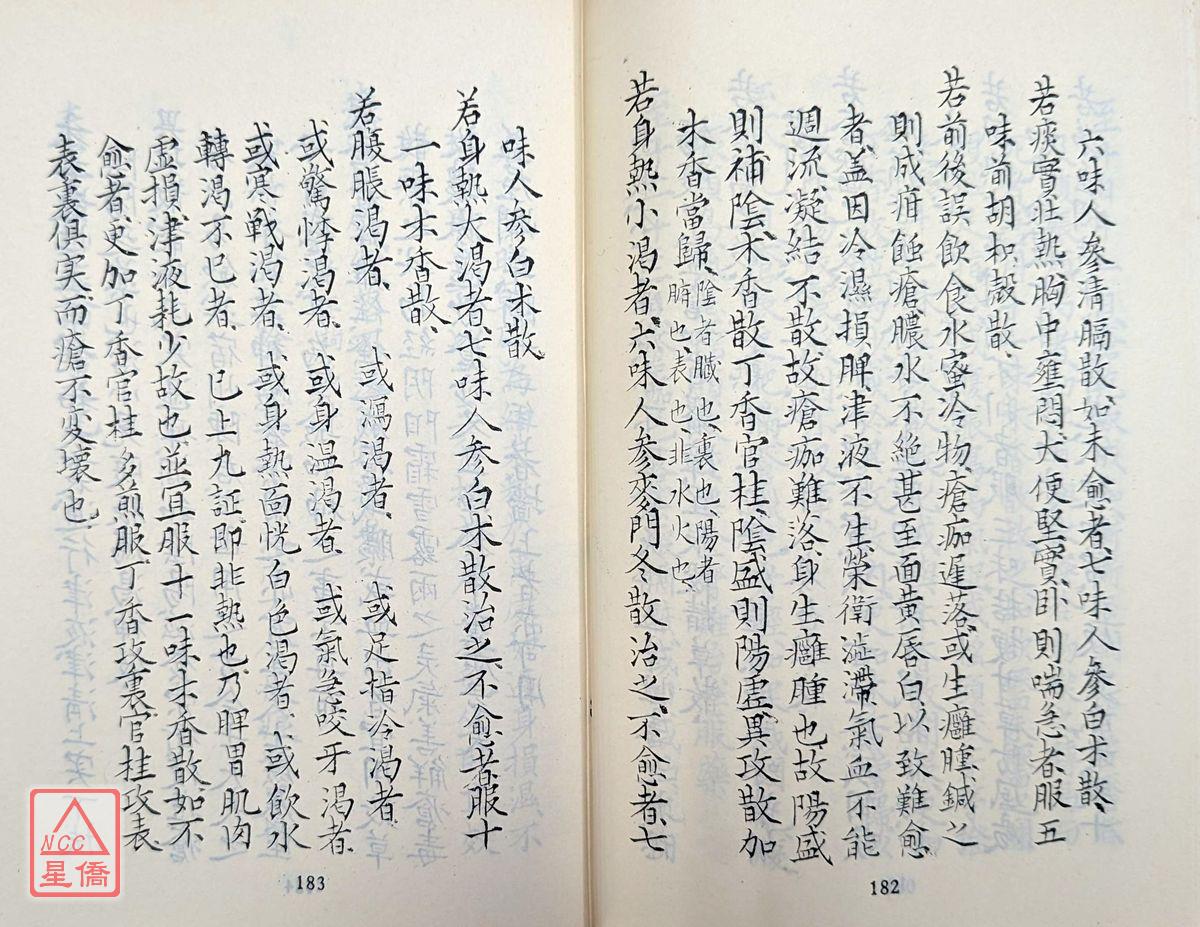 六味人參清膈散、如未愈者、七味人參白朮散、
若痰實壯熱、胸中壅悶、大便堅實、卧則喘急者、服五
味前胡枳殼散、
若前後誤飲食水蜜冷物、瘡痂遲落、或生癰腫、鍼之
則成疳蝕瘡、膿水不絕、甚至面黃唇白、以致難愈
者、蓋因冷濕損脾、津液不生、榮衛澁滯、氣血不能
週流、凝結不散、故瘡痂難洛、身生癰腫也、故陽盛
則補陰、木香散丁香官桂、陰盛則陽虛、異攻散加
木香當歸、陰者臟也、裏也、陽者
腑也、表也、非水火也、
若身熱小渴者、六味人參麥門冬散治之、不愈者、七
182
味人參白朮散
若身熱大渴者、七味人參白朮散治之、不愈者、服十
一味木香散、
若腹脹渴者、或瀉渴者、或足指冷渴者
或驚悸渴者、或身温渴者、或氣急咬牙渴者、
或寒戰渴者、或身熱面㿠白色渴者、或飲水
轉渴不已者、已上九証、即非熱也、乃脾胃肌肉
虛損、津液耗少故也、並宜服十一味木香散、如不
愈者、更加丁香官桂多煎服、丁香攻裏、官桂攻表、
表裏俱实、而瘡不变壞也、
183
NCC
星僑